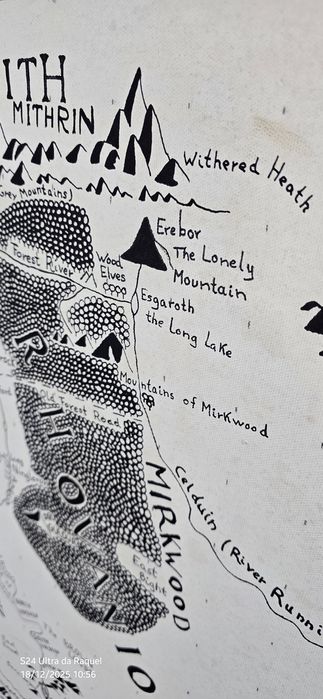 ITH
MITHRIN
Withered Heath
Grey Mountains)
Erebor
The Lonely
Mountain
Forest River
Wood
Elves
Esgaroth
the Long Lake
R
Mountains of Mirkwood
Old Forest Road
H
O
MIRKWOOD
Celduin (River Runni
East
Bight
10
S24 Ultra da Raquel
18/12/2025 10:56